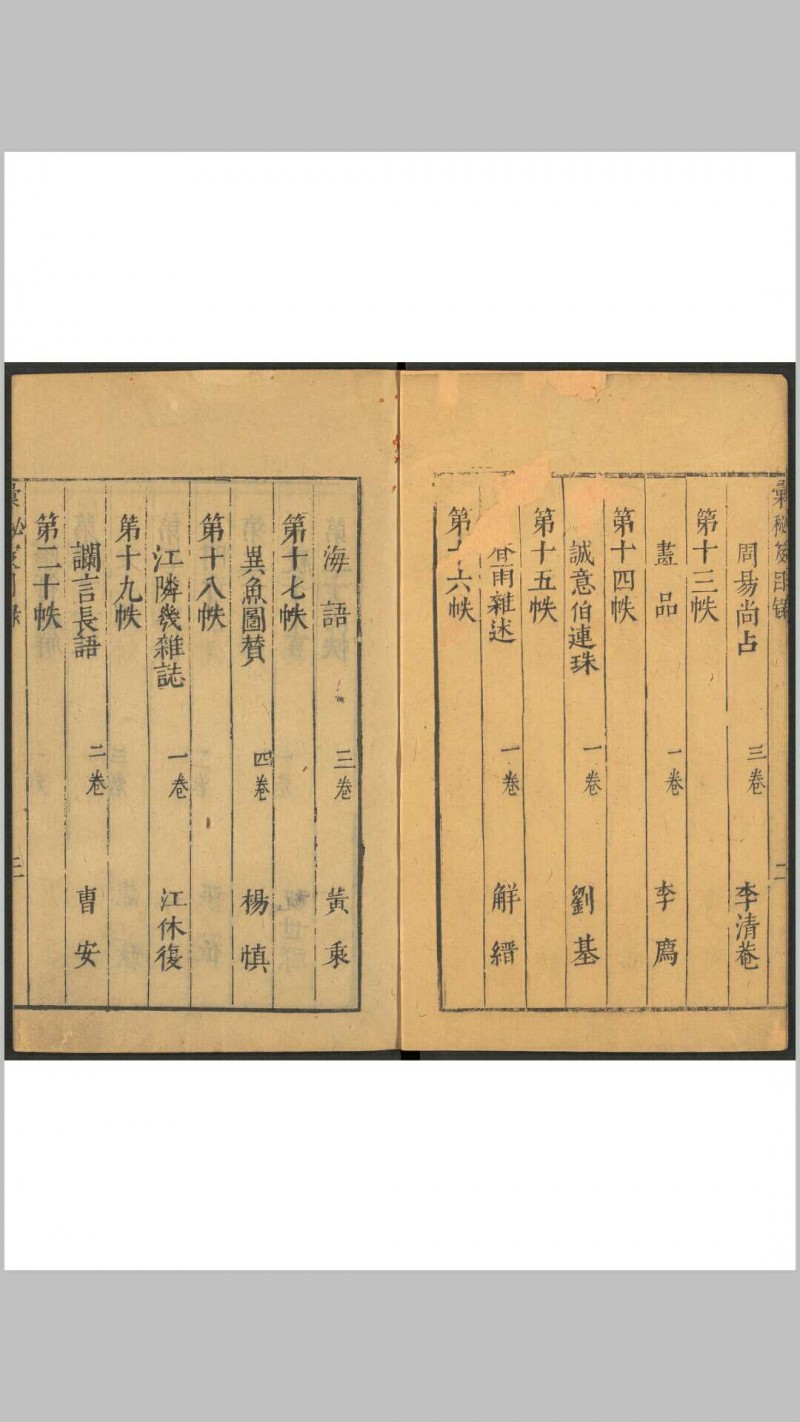 周易尚占 三卷 李清菴
第十三帙
畫品 一卷 李廌
第十四帙
誠意伯連珠 一卷 劉基
第十五帙
雨雜述 一卷 解縉
第十六帙
海語 三卷 黃
第十七帙
異魚圖贊 四卷 楊慎
第十八帙
江隣幾雜誌 一卷 江休復
第十九帙
讕言長語 二卷 曹安
第二十帙